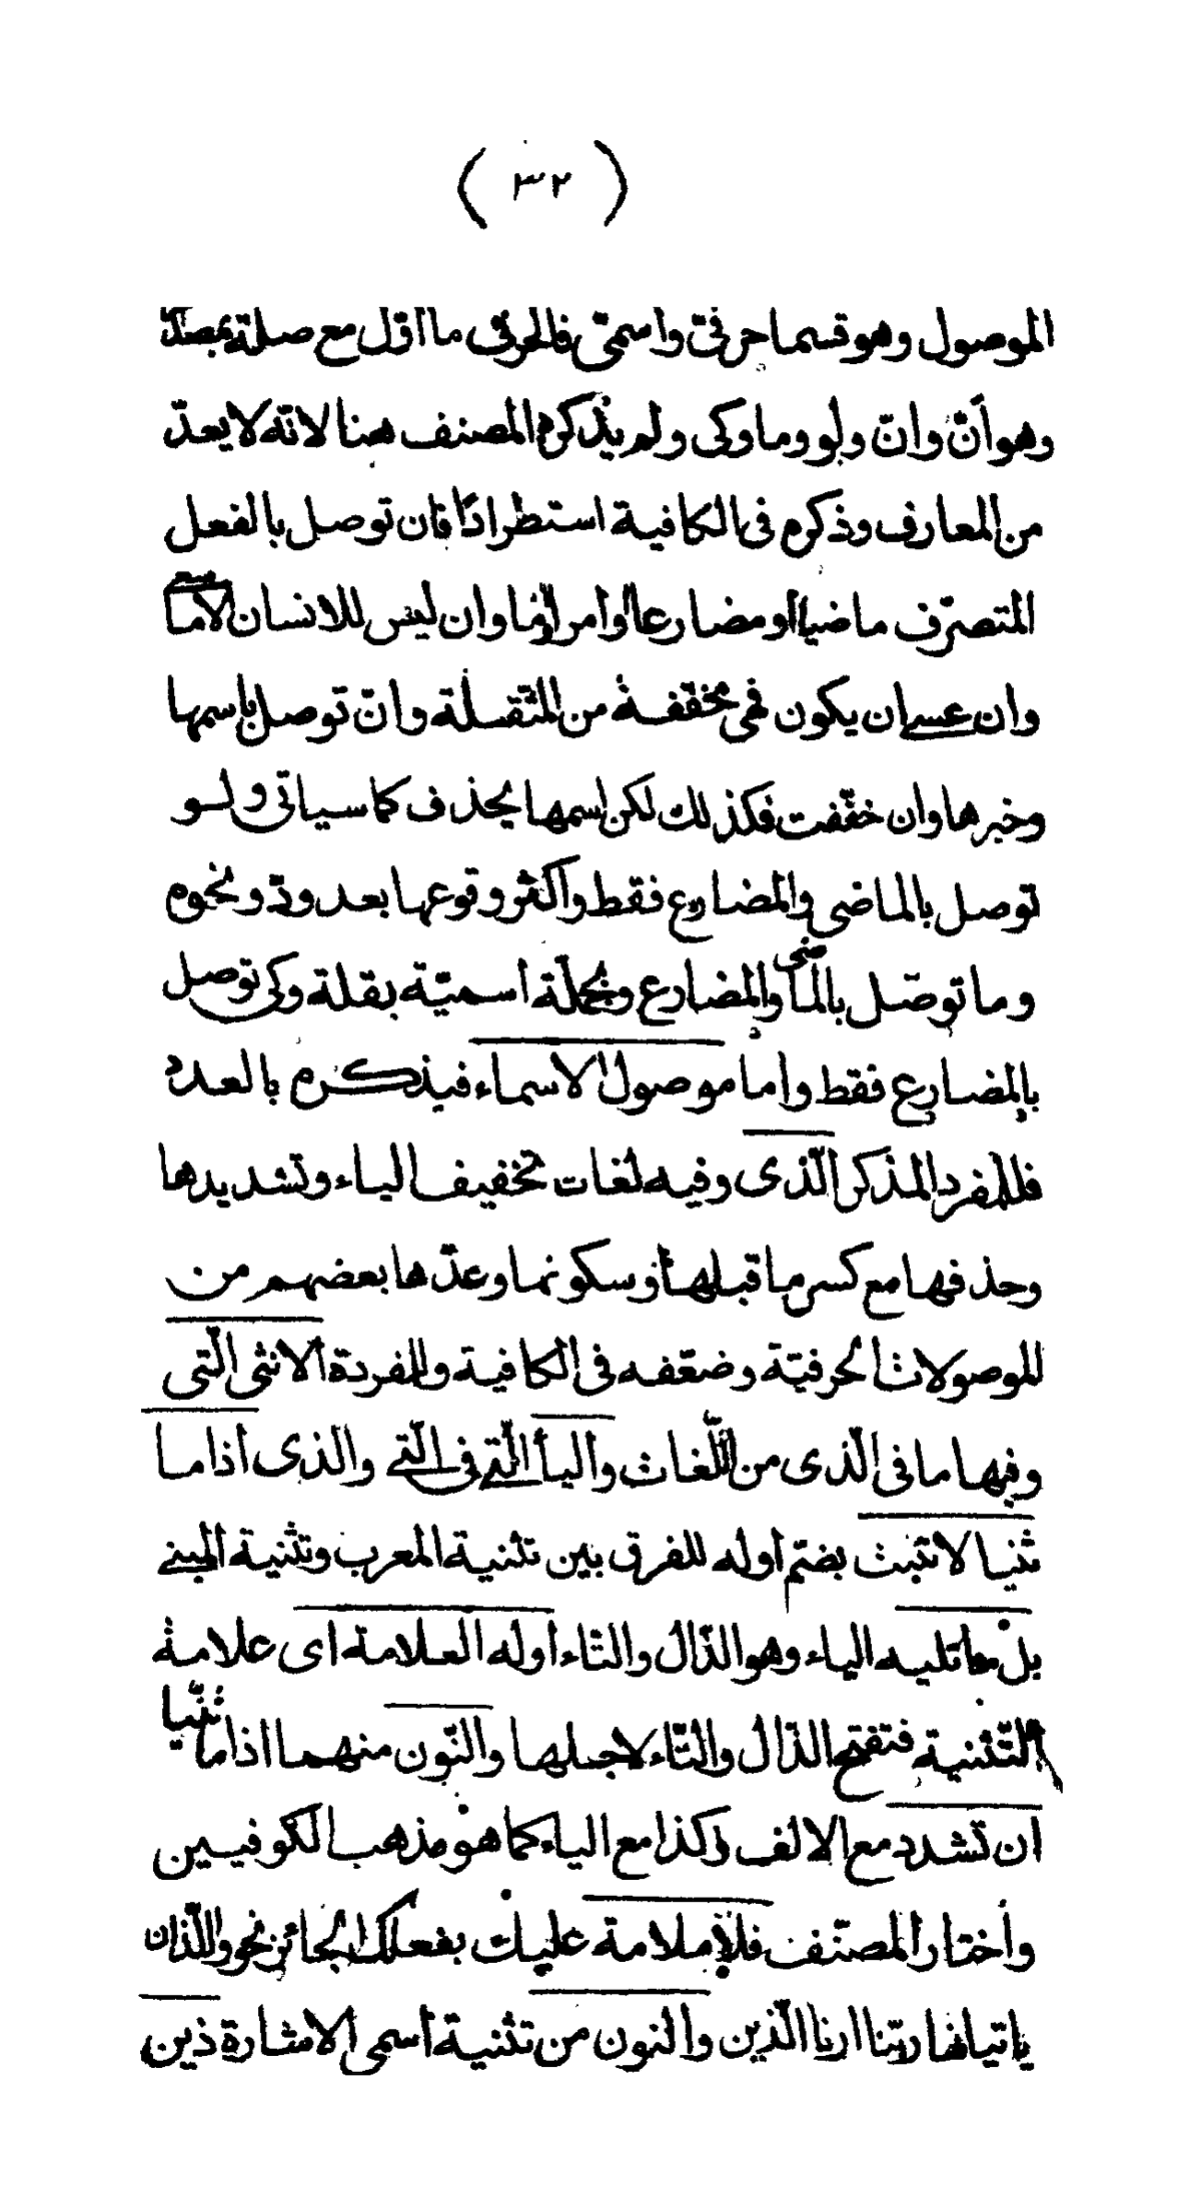 (٣٢)
الموصول وهو قسما حرفىّ واسمىّ فالحرفى ما اوّل مع صلته بمصدر
وهو أنّ وانّ ولو وما وكى ولم يذكره المصنف هنا لانّه لا يعدّ
من المعارف وذكره فى الكافية استطرادًا فان توصل بالفعل
المتصرّف ماضيا او مضارعا او امرا وما وان ليس للانسان الّا ما سعى
وان عسى ان يكون فهى مخفّفة من المثقلة وانّ توصل باسمها
وخبرها وان خفّفت فكذلك لكن اسمها يحذف كما سياتى ولو
توصل بالماضى والمضارع فقط واكثر وقوعها بعد ودّ ونحوه
وما توصل بالماضى والمضارع وبجملة اسميّة بقلة وكى توصل
بالمضارع فقط واما موصول الاسماء فيذكره بالعدد
فللمفرد المذكر الّذى وفيه لغات تخفيف الياء وتشديدها
وحذفها مع كسر ما قبلها او سكونها وعدّها بعضهم من
الموصولات الحرفيّة وضعّفه فى الكافية وللمفردة الانثى الّتى
وفيها ما فى الّذى من اللّغات واليأ الّتى فى الّتى والذى اذا ما
ثنيا لا تثبت بضمّ اوله للفرق بين تثنية المعرب وتثنية المبنى
بل ما تليه الياء وهو الذّال والتاء اوله العلامة اى علامة
التّثنية فتفتح الذّال والتّاء لاجلها والنّون منهما اذا ما ثنّيا
ان تشدد مع الالف وكذا مع الياء كما هو مذهب الكوفيين
واختاره المصنّف فلا ملامة عليك بفعلك الجائز نحو واللّذان
ياتيانها ربّنا ارنا الّذين والنون من تثنية اسمى الاشارة ذين